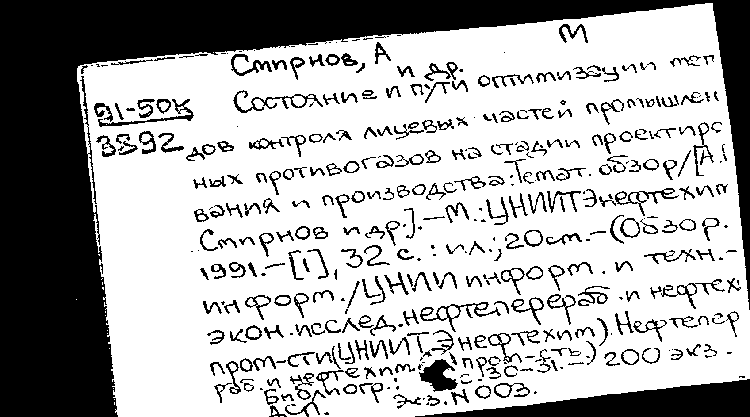 М
Смирнов, А
и др.
91-50К
3892
Состояние и пути оптимизации мет
дов контроля лицевых частей промышлен
ных противогазов на стадии проектиро
вания и производства: Темат. обзор/[А.
Смирнов и др.].—М.:ЦНИИТЭнефтехим
1991.—[1], 32 с. : ил.; 20 см.—(Обзор.
информ./ЦНИИ информ. и техн.-
экон. исслед. нефтеперераб. и нефтех.
пром-сти(ЦНИИТЭнефтехим). Нефтепер
раб. и нефтехим. пром-сть.)
Библиогр.: с. 30-31.— 200 экз.
ДСП. Экз. N 003.